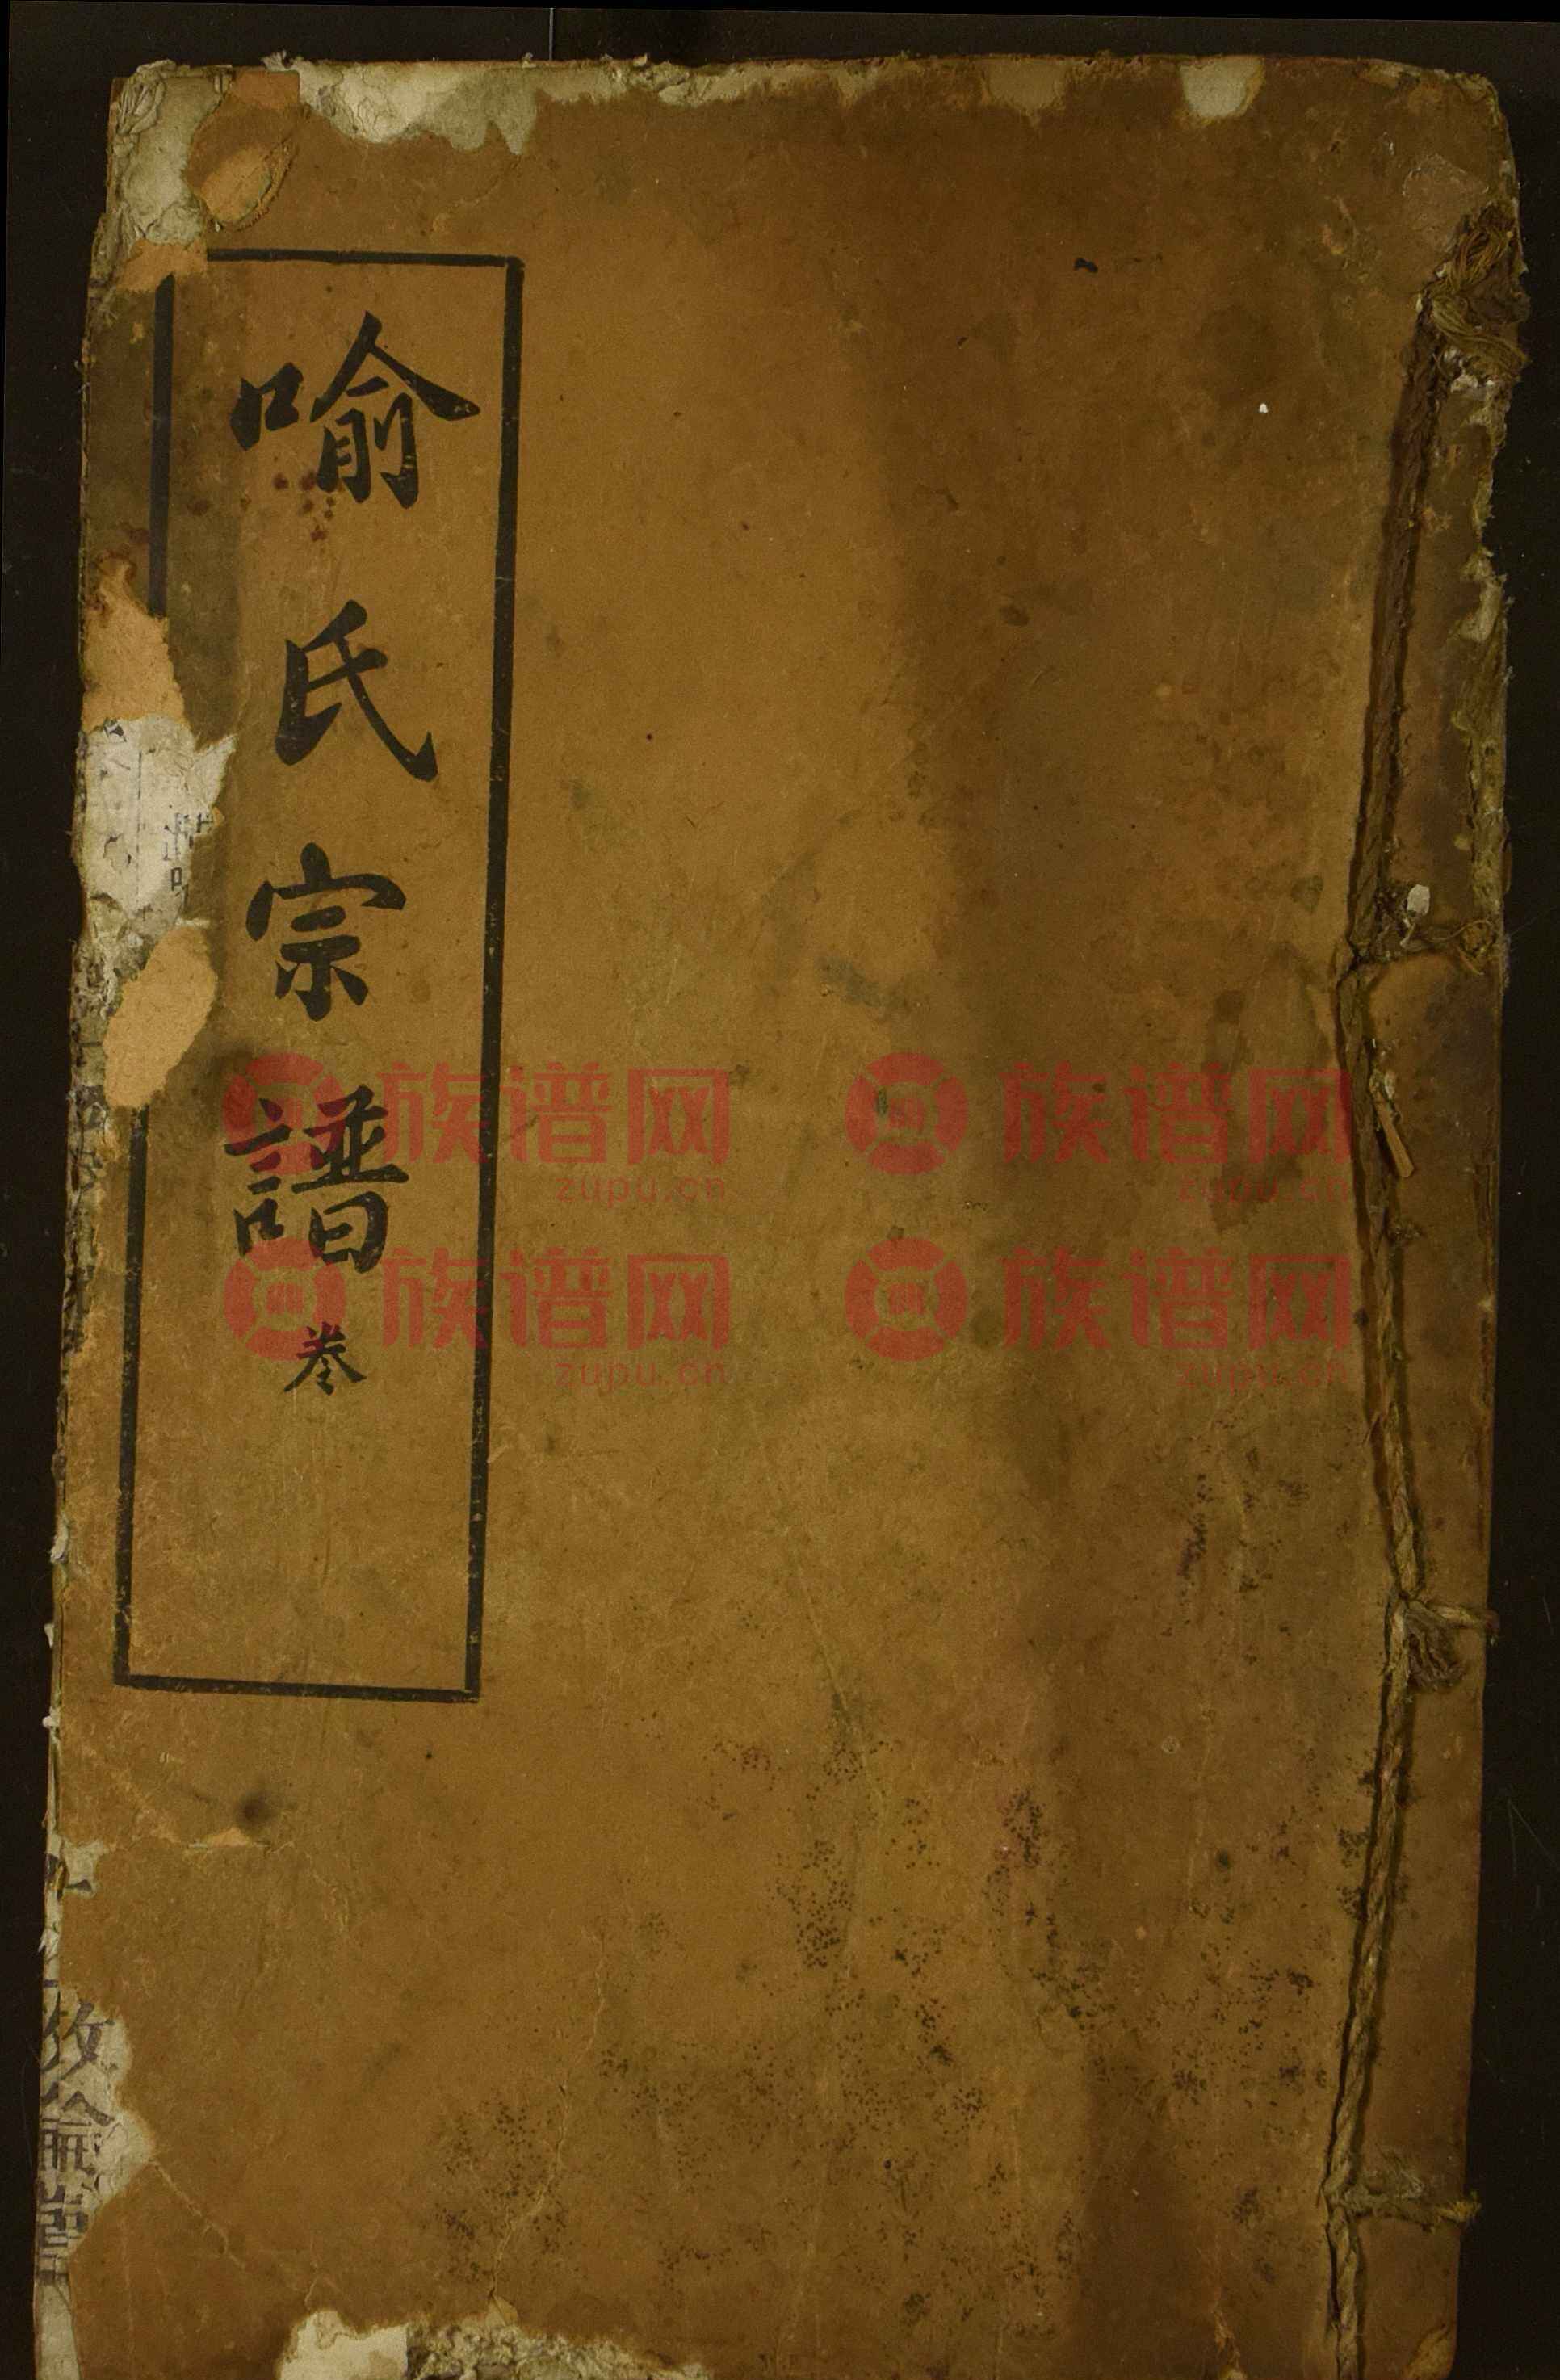 喻氏宗譜 卷
族谱网 族谱网
zupu.cn zupu.cn
族谱网 族谱网
zupu.cn zupu.cn